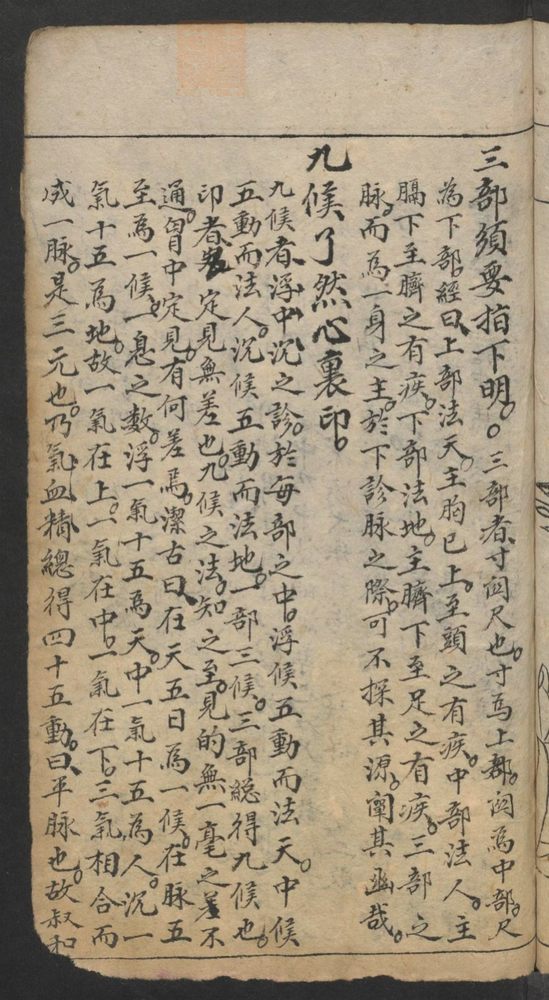 三部須要指下明。三部者、寸関尺也。寸為上部。関為中部。尺
為下部。經曰、上部法天。主胸已上。至頭之有疾。中部法人。主
膈下至臍之有疾。下部法地。主臍下至足之有疾。三部之
脉。而為一身之主。於下診脉之際。可不探其源。闡其幽哉。
九候了然心裏印。
九候者、浮中沉之診。於每部之中。浮候五動而法天。中候
五動而法人。沉候五動而法地。一部三候。三部総得九候也。
印者定見無差也。九候之法。知之至。見的無一毫之差不
通。胃中定見。有何差焉。潔古曰、在天五日為一候。在脉五
至為一候。一息之數。浮一氣十五為天。中一氣十五為人。沉一
氣十五為地。故一氣在上。一氣在中。一氣在下。三氣相合而
成一脉。是三元也。乃氣血精總得四十五動。曰平脉也。故叔和